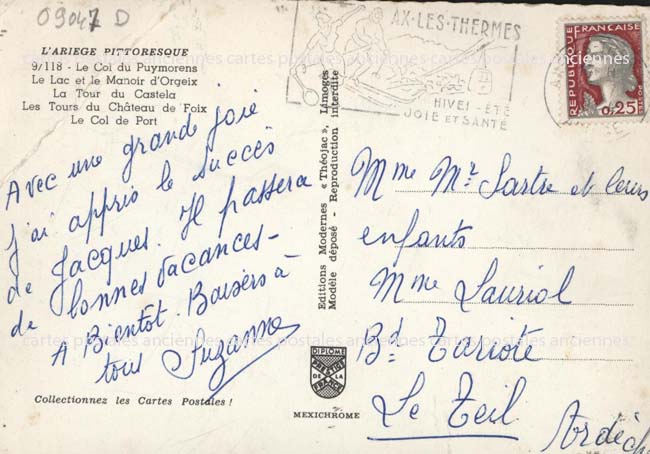 09047 D
L'ARIEGE PITTORESQUE
9/118 - Le Col du Puymorens
Le Lac et le Manoir d'Orgeix
La Tour du Castela
Les Tours du Château de Foix
Le Col de Port
Avec une grande joie
j'ai appris le succès
de Jacques. Il passera
de bonnes vacances -
A Bientôt. Baisers à
tous Suzanne
Collectionnez les Cartes Postales !
Editions Modernes « Théojac », Limoges
Modèle déposé - Reproduction interdite
DIPLOME
PRESTIGE
DE LA
FRANCE
MEXICHROME
AX-LES-THERMES
HIVER - ÉTÉ
JOIE ET SANTÉ
REPUBLIQUE FRANÇAISE
0,25
POSTES
Mme Mr Sartre et leurs
enfants
Mme Lauriol
Bd
Le Teil
Ardèch
cartes postales anciennes cartes postales anciennes cartes postales anciennes
cartes postales anciennes cartes postales anciennes cartes postales anciennes